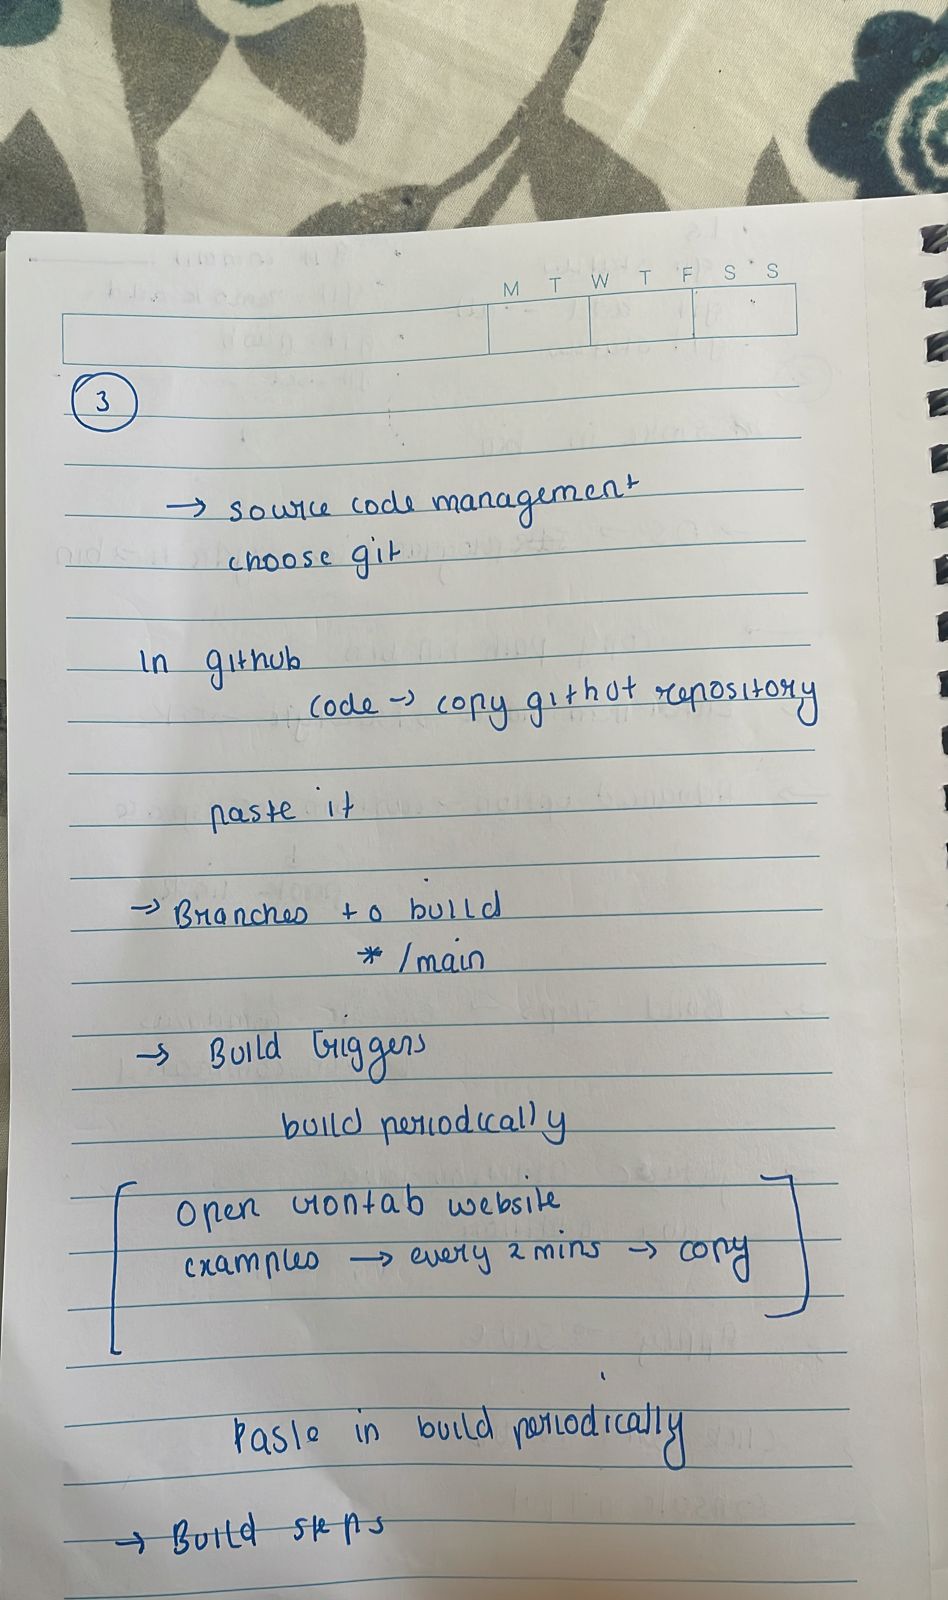 M T W T F S S
3
→ source code management
choose git
In github
code → copy githut repository
paste it
→ Branches to build
* /main
→ Build triggers
build periodically
open crontab website
examples → every 2 mins → copy
Paste in build periodically
→ Build steps